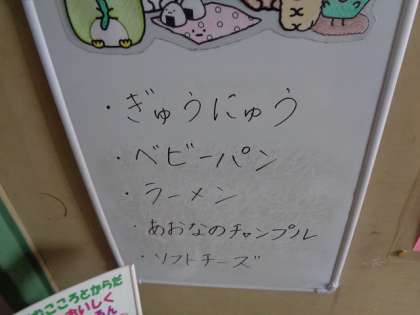 ・ぎゅうにゅう
・ベビーパン
・ラーメン
・あおなのチャンプル
・ソフトチーズ
こころとからだ
おいしく